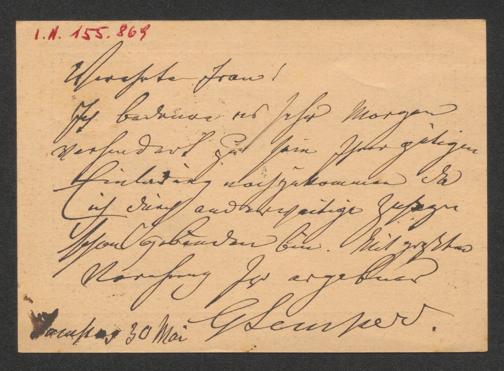 I.N. 155.869
Verehrte Frau!
Ich bedaure es sehr Morgen
verhindert zu sein Ihrer gütigen
Einladung nachzukommen da
ich durch anderweitige Zusagen
schon gebunden bin. Mit größter
Verehrung Ihr ergebner
Samstag 30 Mai GSemper.